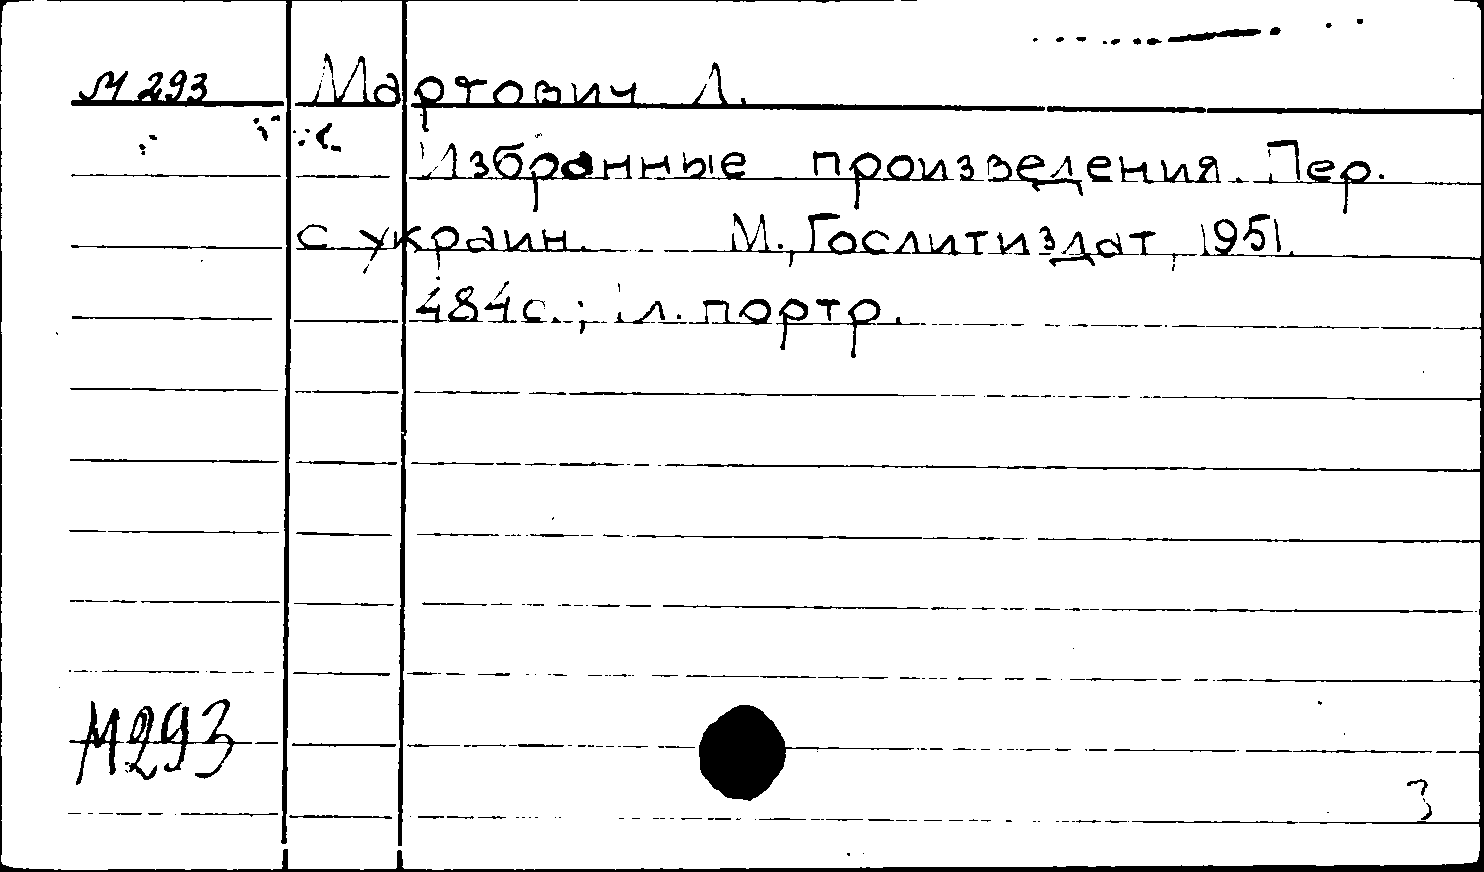 М 293 Мартович Л.
Избранные произведения. Пер.
с украин. М., Гослитиздат, 1951.
484с.; 1л. портр.
М293
3